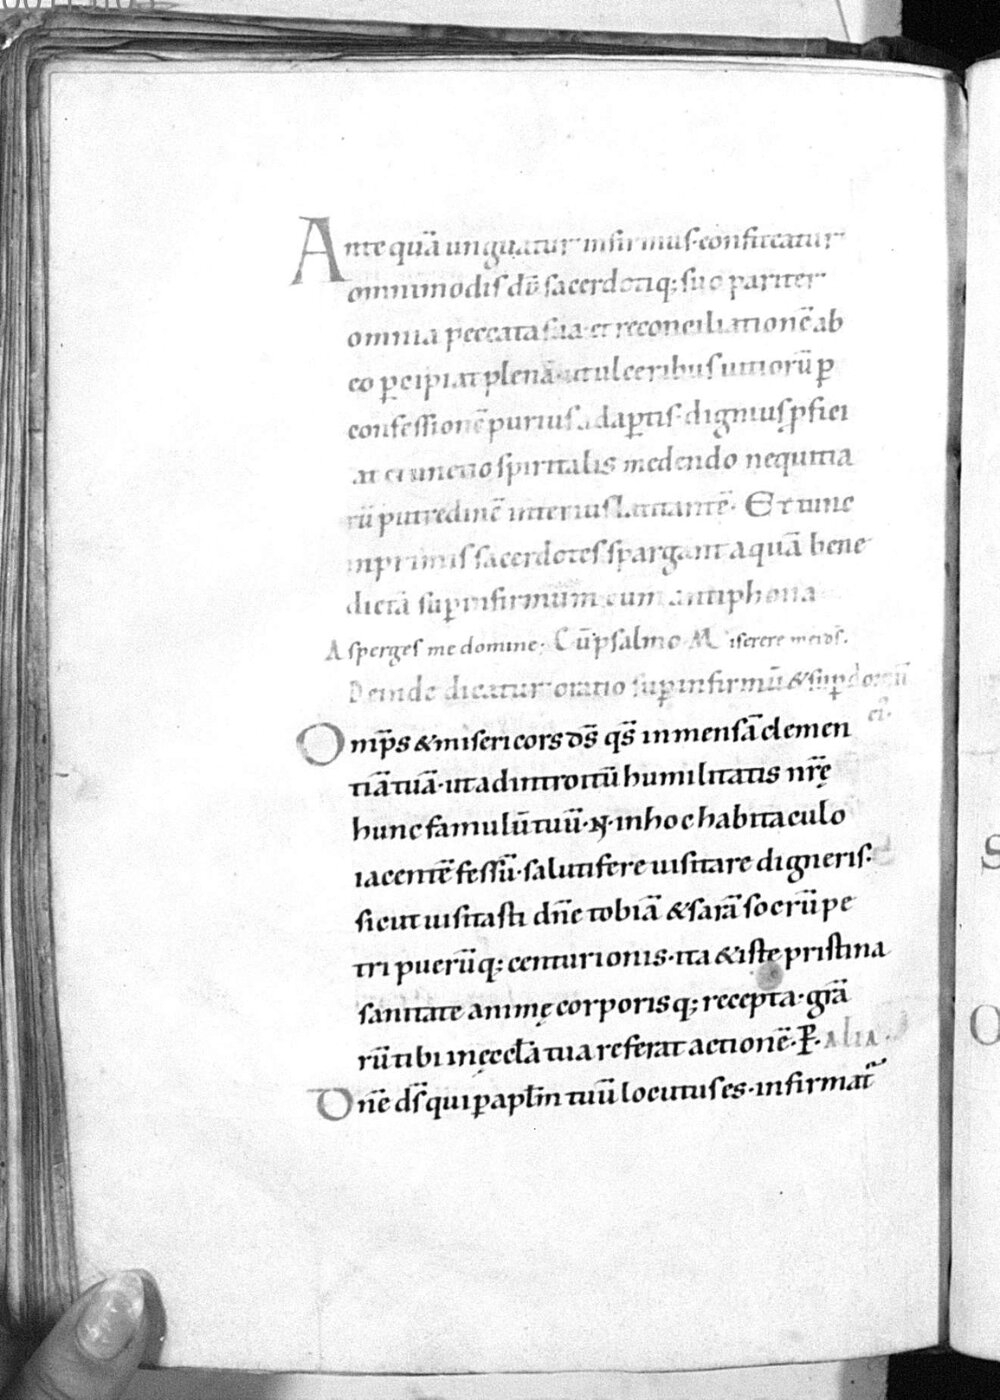 Ante quā unguatur infirmus· confiteatur
omnimodis dō sacerdotiq; suo pariter
omnia peccata sua· et reconciliationē ab
eo p̲cipiat plenā· ut ulceribus uitiorū p̲
confessionē purius adap̲tis· dignius p̲fici
at ei unctio spiritalis medendo nequitia
rū putredinē interius latitantē. Et tunc
inprimis sacerdotes spargant aquā bene
dictā sup̲ infirmum cum antiphona
Asperges me domine; Cū psalmo Miserere mei ds̄.
Deinde dicatur oratio sup̲ infirmū & sup̲ domū
ei᷒.
Omp̄s & misericors ds̄ qs̄ inmensā clemen
tiā tuā· ut ad introitū humilitatis nr̄ę
hunc famulū tuū· N· in hoc habitaculo
iacentē fessū· salutifere uisitare digneris·
sicut uisitasti dn̄e tobiā & sarā socrū pe
tri puerūq; centurionis· ita & iste pristina
sanitate animę corporisq; recepta· grā
rū tibi in ęccl̄a tua referat actionē· P̲. Alia.
Dn̄e ds̄ qui p̲ apl̄m tuū locutus es· infirmat᷑